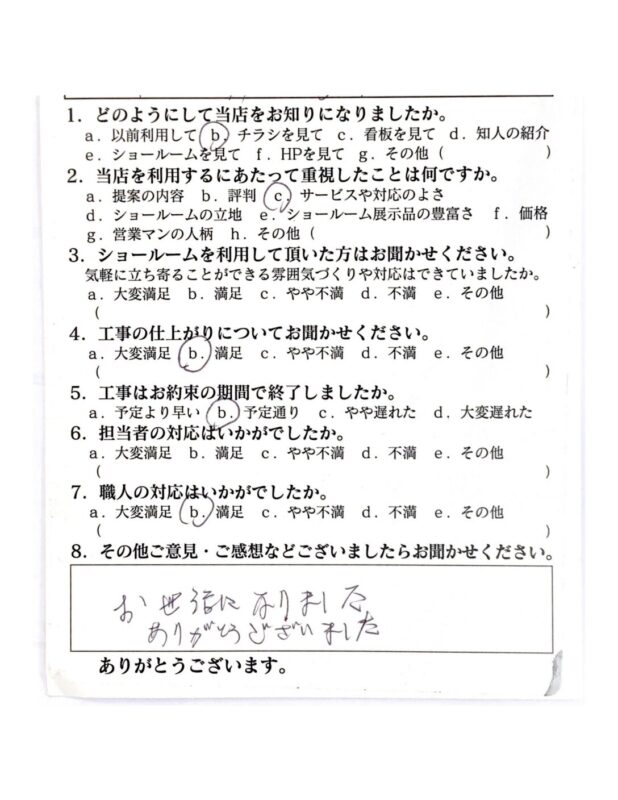 1. どのようにして当店をお知りになりましたか。
a. 以前利用して b. チラシを見て c. 看板を見て d. 知人の紹介
e. ショールームを見て f. HPを見て g. その他 ( )
2. 当店を利用するにあたって重視したことは何ですか。
a. 提案の内容 b. 評判 c. サービスや対応のよさ
d. ショールームの立地 e. ショールーム展示品の豊富さ f. 価格
g. 営業マンの人柄 h. その他 ( )
3. ショールームを利用して頂いた方はお聞かせください。
気軽に立ち寄ることができる雰囲気づくりや対応はできていましたか。
a. 大変満足 b. 満足 c. やや不満 d. 不満 e. その他
( )
4. 工事の仕上がりについてお聞かせください。
a. 大変満足 b. 満足 c. やや不満 d. 不満 e. その他
( )
5. 工事はお約束の期間で終了しましたか。
a. 予定より早い b. 予定通り c. やや遅れた d. 大変遅れた
6. 担当者の対応はいかがでしたか。
a. 大変満足 b. 満足 c. やや不満 d. 不満 e. その他
( )
7. 職人の対応はいかがでしたか。
a. 大変満足 b. 満足 c. やや不満 d. 不満 e. その他
( )
8. その他ご意見・ご感想などございましたらお聞かせください。
お世話になりました
ありがとうございました
ありがとうございます。